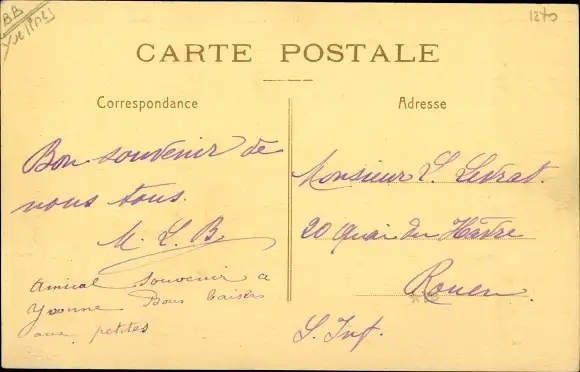 BB
Yvelines
1270
CARTE POSTALE
Correspondance
Adresse
Bon souvenir de
nous tous.
M. L. B.
Amical souvenir a
Yvonne Bons baisers
aux petites
Monsieur L. Levrat.
20 Quai du Hâvre
Rouen.
S. Inf.